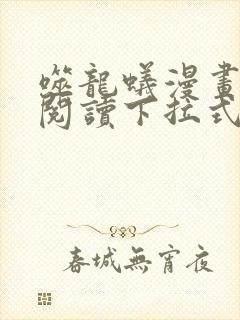 噬龍蟻漫畫
閱讀下拉式
春城無宵夜